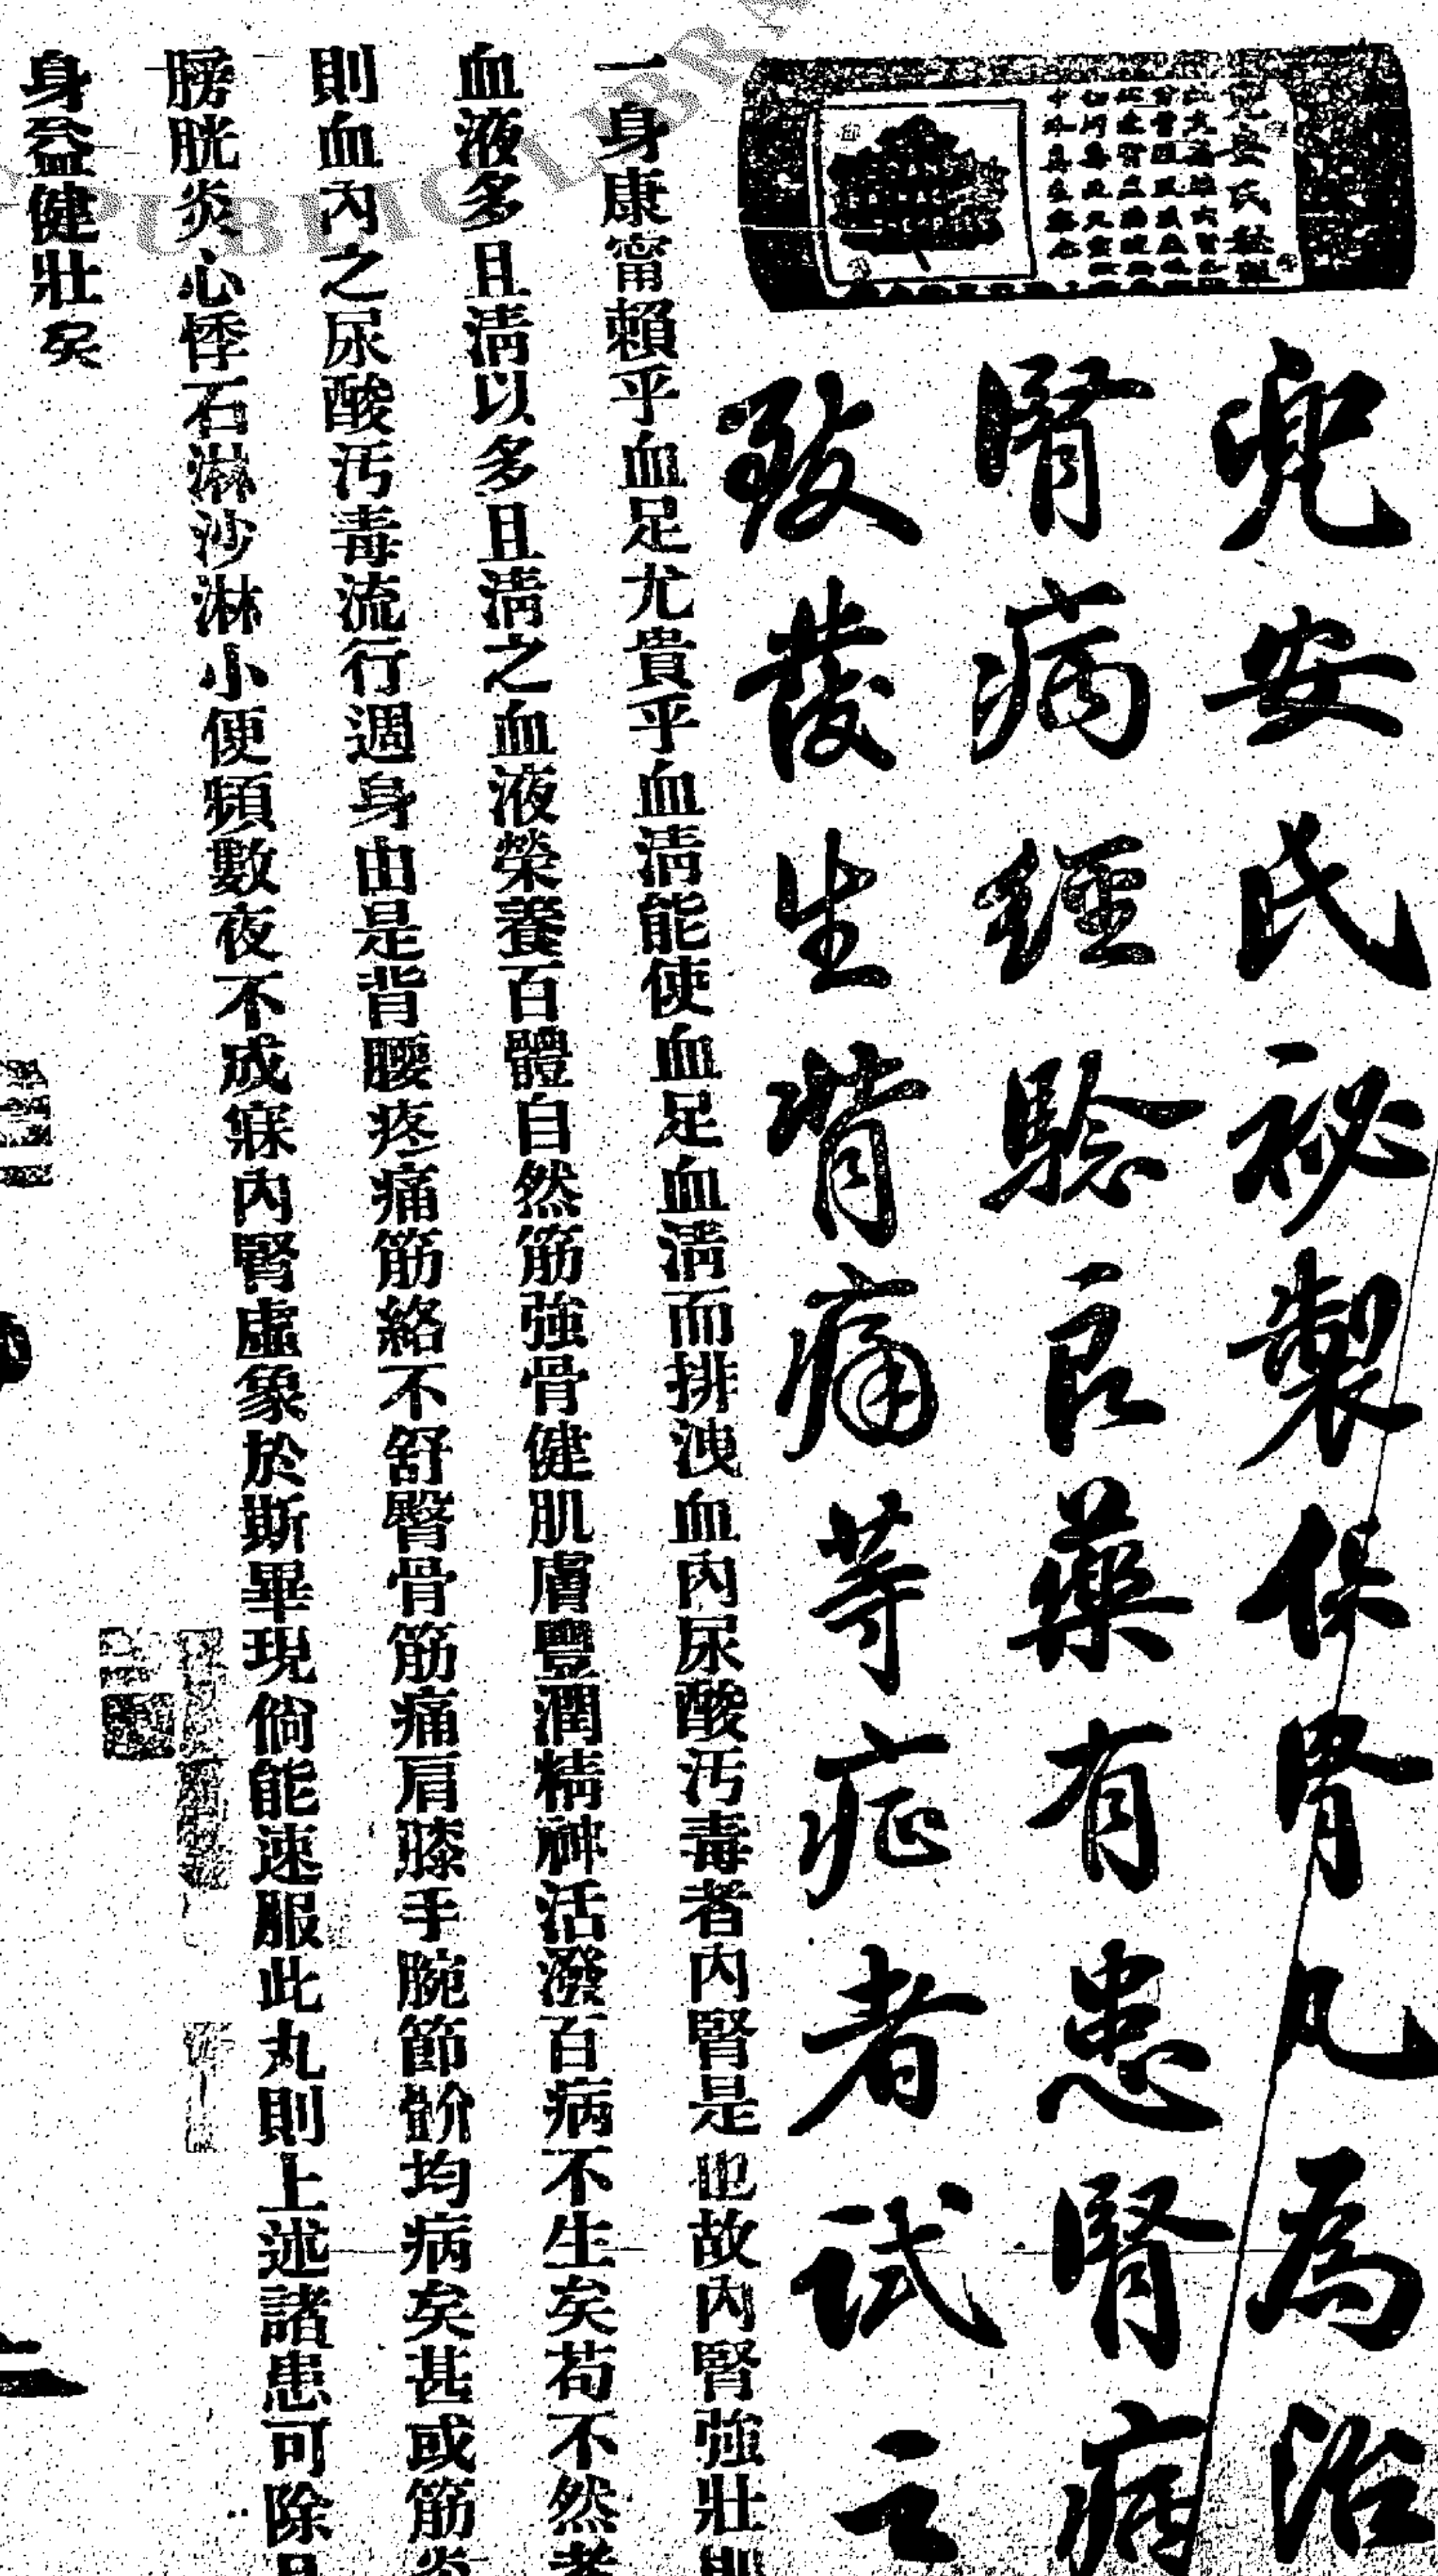 兜安氏祕製保腎凡為治
腎病經驗良藥有患腎病
致發生背痛等症者試之
一身康甯賴乎血足尤貴乎血清能使血足血清而排洩血內尿酸污毒者內腎是也故內腎強壯
血液多且清以多且清之血液榮養百體自然筋強骨健肌膚豐潤精神活潑百病不生矣苟不然者
則血內之尿酸污毒流行週身由是背腰疼痛筋絡不舒臀骨筋痛肩膝手腕節骱均病矣甚或筋炎
膀胱炎心悸石淋沙淋小便頻數夜不成寐內腎虛象於斯畢現倘能速服此丸則上述諸患可除
身益健壯矣
PUBLIC LIBRA